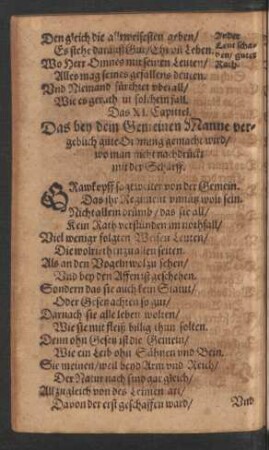 Den gleich die allweisesten geben/
Es stehe darauff Gut/ Ehr vñ Leben.
Wo Herr Omnes mit seinen Leuten/
Alles mag seines gefallens deuten.
Und Niemand fürchtet vberall/
Wie es gerath in solchem fall.
Das XI. Capittel.
Das bey dem Gemeinen Manne ver-
geblich gute Ordnung gemacht wird/
wo man nicht nachdruckt
mit der Schärff.
GRawkopff sagt weiter von der Gemein.
Das ihr Regiment vnnütz woll sein.
Nicht allein drumb/ das sie all/
Kein Rath verstünden im nothfall/
Viel weniger folgten Weisen Leuten/
Die wolriethen zu allen seiten.
Als an den Vogeln wol zu sehen/
Und bey den Affen ist geschehen.
Sondern das sie auch kein Statut/
Oder Gesetz achten so gut/
Darnach sie alle leben wolten/
Wie sie mit fleiß billig thun solten.
Denn ohn Gesetz ist die Gemein/
Wie ein Leib ohn Sähnen vnd Bein.
Sie meinen/ weil beyd Arm vnd Reich/
Der Natur nach sind gar gleich/
All zugleich von des Leimen art/
Davon der erst geschaffen ward/
Und